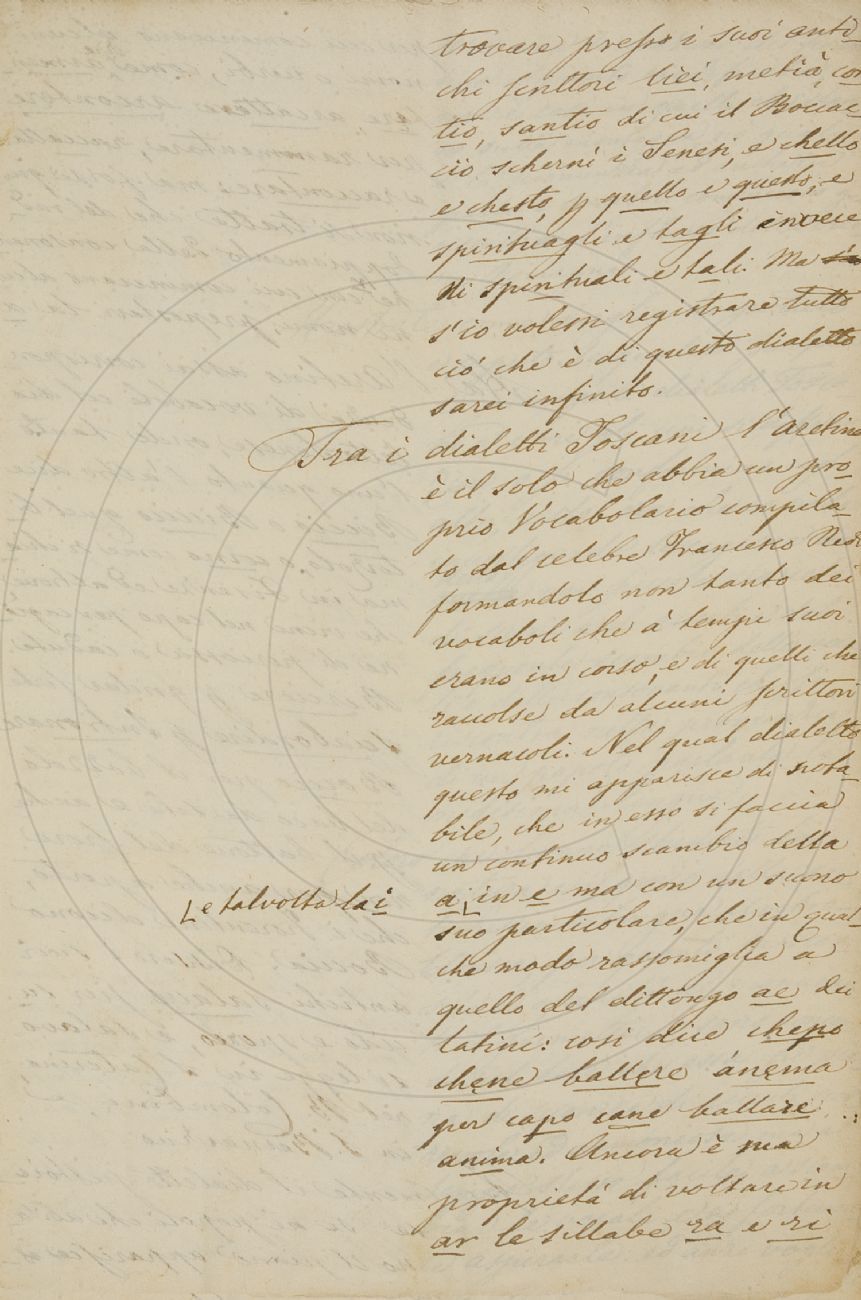 trovare presso i suoi anti-
chi scrittori lièi, metià, con
tio, santio di cui il Boccac-
cio schernì i Senesi, e chello
e chesto, p quello e questo, e
spirituagli e tagli invece
di spirituali e tali. Ma
s'io volessi registrare tutto
ciò che è di questo dialetto
sarei infinito.
Tra i dialetti Toscani l'aretino
è il solo che abbia un pro-
prio Vocabolario compila-
to dal celebre Francesco Redi
formandolo non tanto dei
vocaboli che a' tempi suoi
erano in corso, e di quelli che
raccolse da alcuni scrittori
vernacoli. Nel qual dialetto
questo mi apparisce di nota-
bile, che in esso si faccia
un continuo scambio della
a in e ma con un suono
e talvolta la i
suo particolare, che in qual-
che modo rassomiglia a
quello del dittongo ae dei
latini: così dice chepo
chene battere ánema
per capo cane battare
anima. Ancora è sua
proprietà di voltare in
ar le sillabe ra e ri